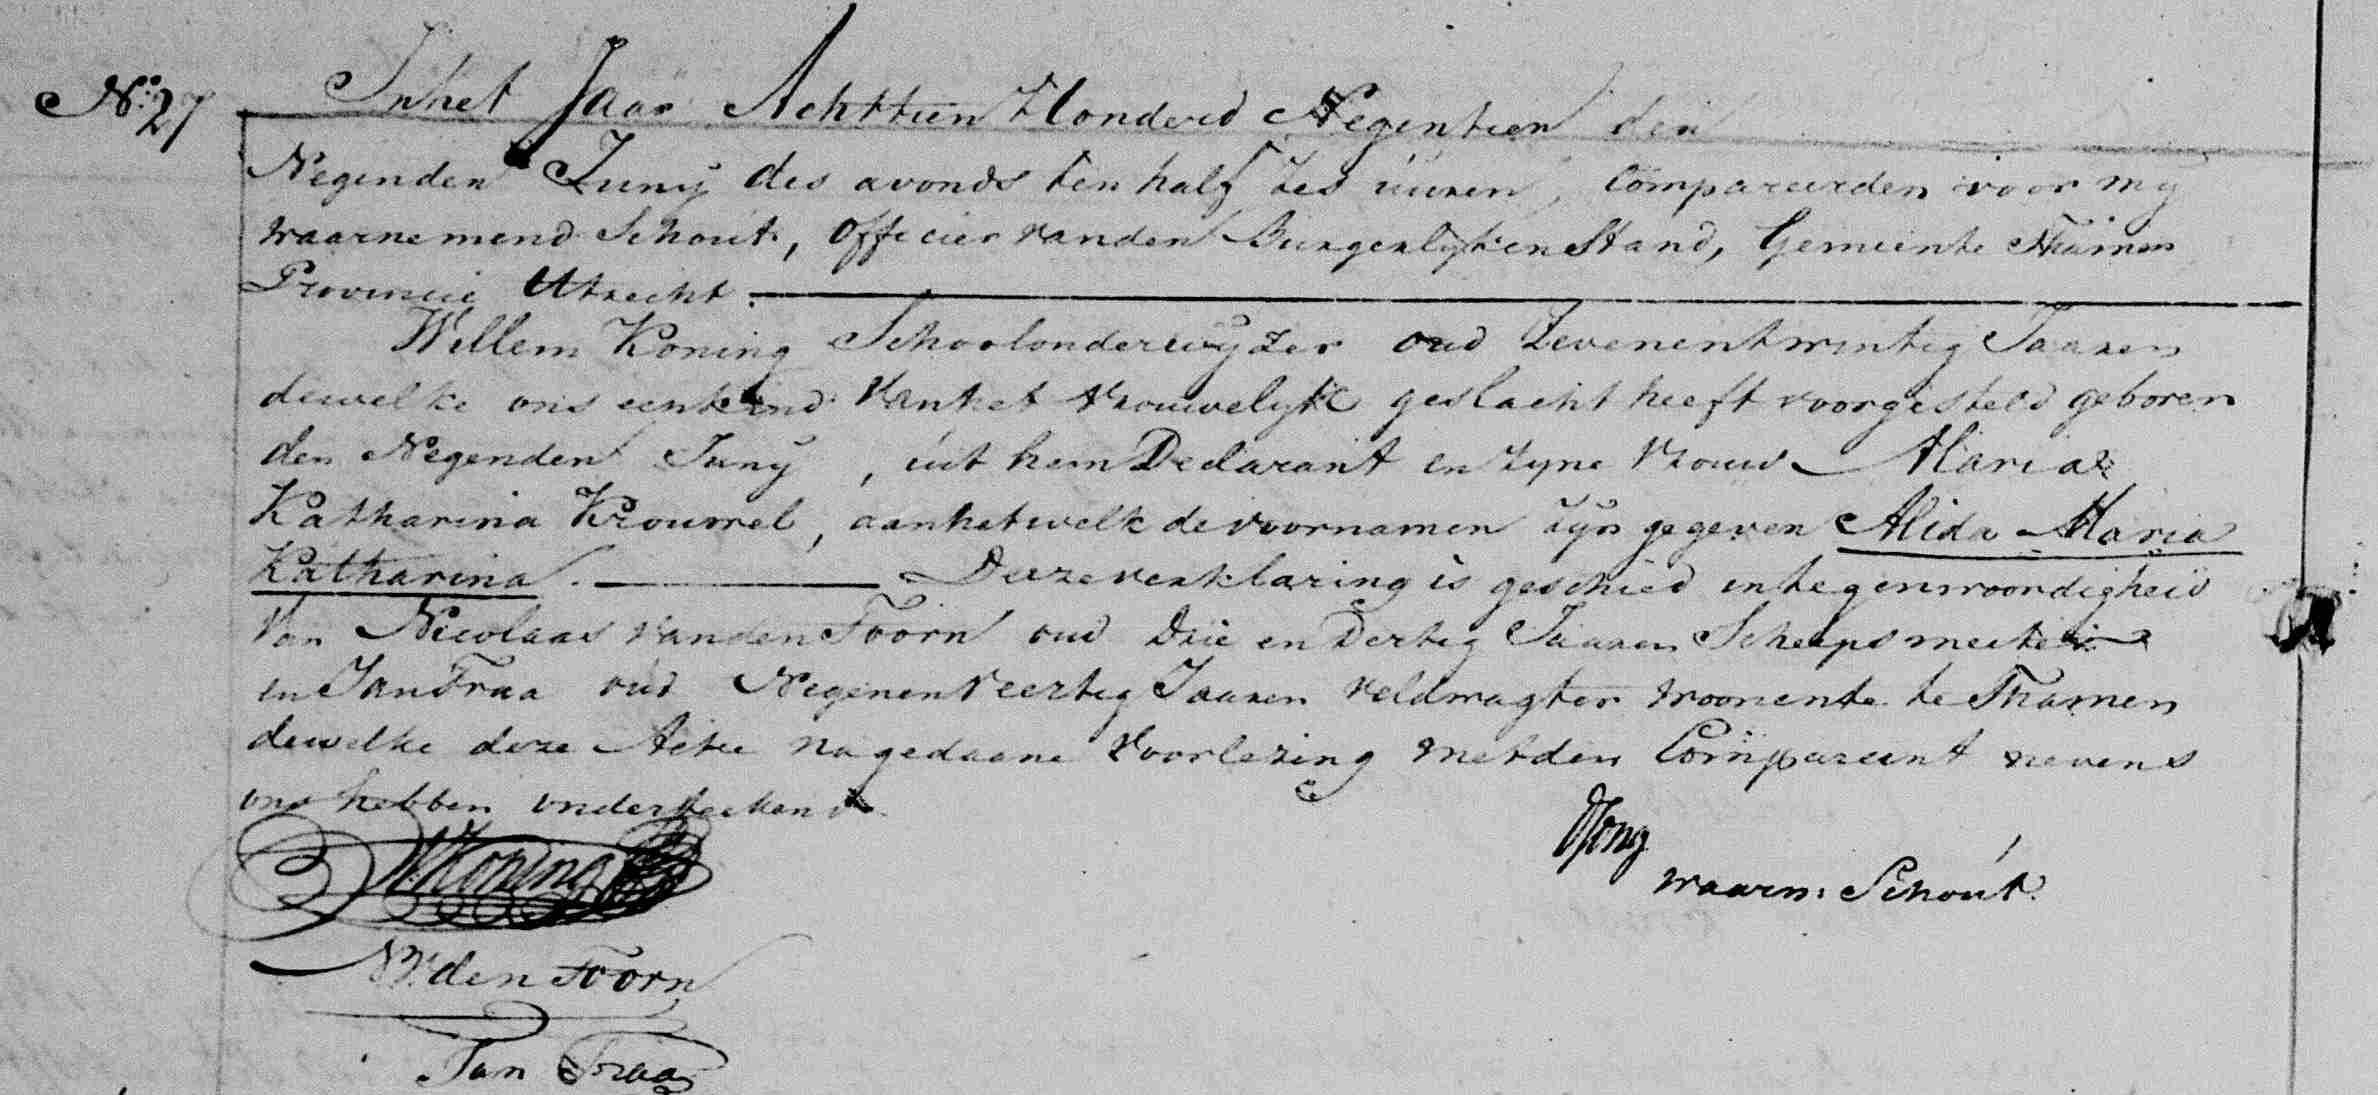 No. 27
In het Jaar Achttien Honderd Negentien den
Negenden Juny des avonds ten half zes uuren, Compareerden voor my
waarnemend Schout, Officier van den Burgerlyken Stand, Gemeente Thamen
Provincie Utrecht.
Willem Koning Schoolonderwyzer oud Zevenentwintig Jaaren
dewelke ons een kind van het vrouwelyk geslacht heeft voorgesteld geboren
den Negenden Juny, uit hem Declarant en zyne vrouw Maria
Katharina Krouwel, aan het welk de voornamen zyn gegeven Alida Maria
Katharina. Deeze verklaring is geschied in tegenwoordigheid
van Nicolaas van den Toorn oud Drie en Dertig Jaaren Scheepsmeeter
en Jan Fraa oud Negenenveertig Jaaren veldwagter woonente te Thamen
dewelke deze Acte na gedaane voorlezing met den Comparant nevens
ons hebben ondertekend.
DJong
waarn: Schout.
W. Koning
N. V. den Toorn
Jan Fraa